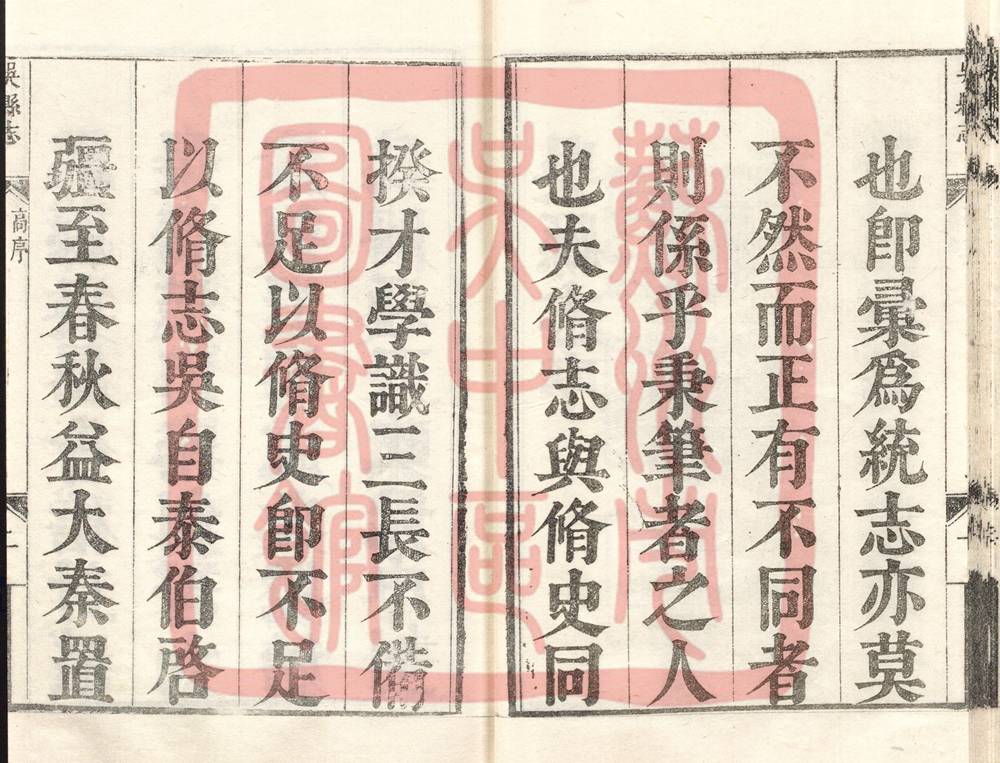 也卽彙爲統志亦莫
不然而正有不同者
則係乎秉筆者之人
也夫脩志與脩史同
揆才學識三長不備
不足以脩史卽不足
以脩志吳自泰伯啓
疆至春秋益大秦置
吳縣志
高序
二
蘇州市
吳中區
圖書館